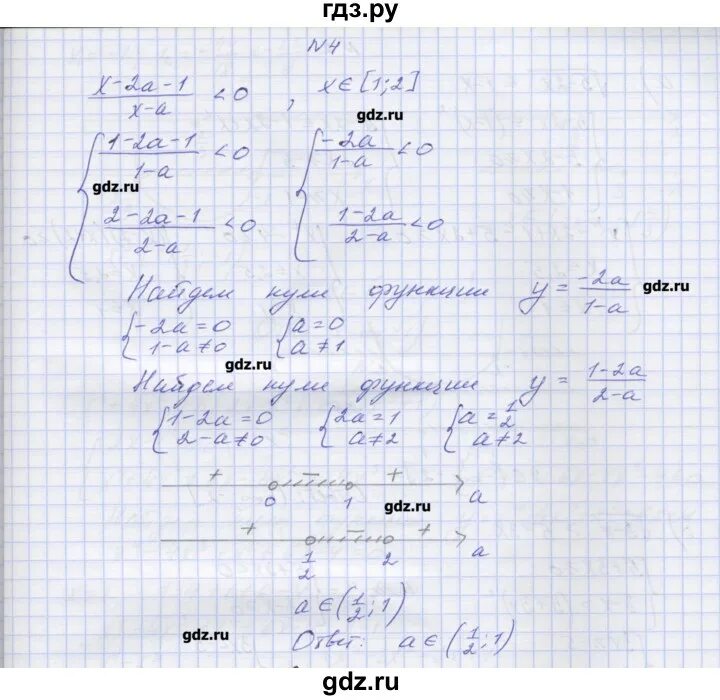 гдз.ру
N4
(x-2a-1)/(x-a) < 0, x∈[1;2]
gdz.ru
{ (1-2a-1)/(1-a) < 0 { (-2a)/(1-a) < 0
gdz.ru
(2-2a-1)/(2-a) < 0 (1-2a)/(2-a) < 0
Найдем нули функции y = (-2a)/(1-a) gdz.ru
{ -2a=0 { a=0
1-a≠0 a≠1
gdz.ru
Найдем нули функции y = (1-2a)/(2-a)
{ 1-2a=0 { 2a=1 { a=1/2
2-a≠0 a≠2 a≠2
+ - +
0 1 gdz.ru a
+ - +
1/2 2 a
a∈(1/2;1)
gdz.ru Ответ: a∈(1/2;1)
gdz.ru